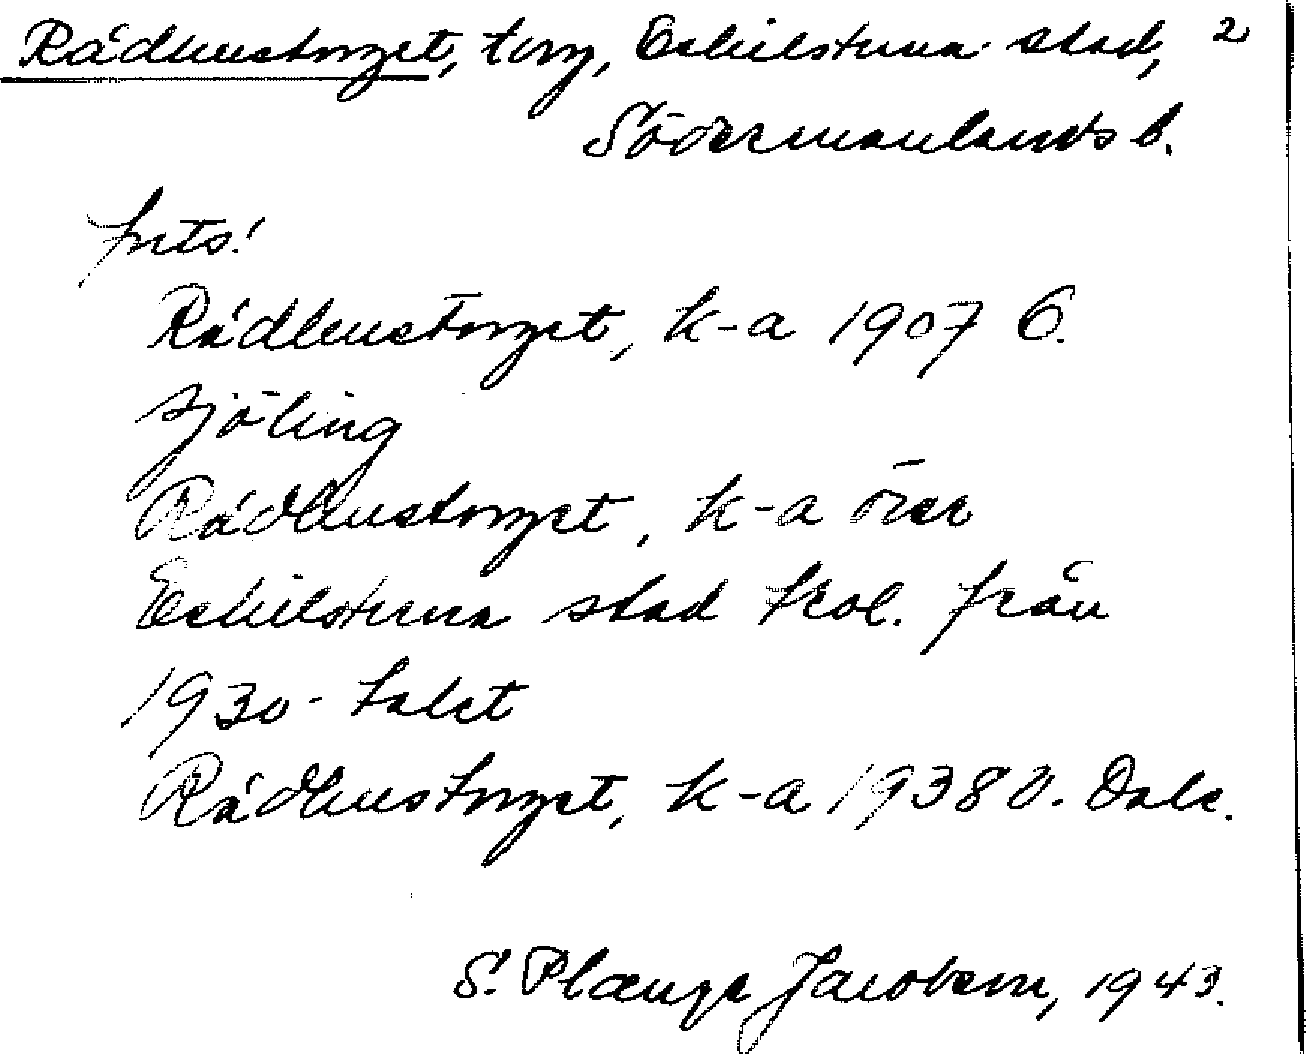 Rådhustorget, torg, Eskilstuna stad, 2
Södermanlands l.
forts!
Rådhustorget, k-a 1907 C.
Sjöling
Rådhustorget, k-a över
Eskilstuna stad trol. från
1930-talet
Rådhustorget, k-a 1938 O. Dale.
S. Plænge Jacobson, 1943.